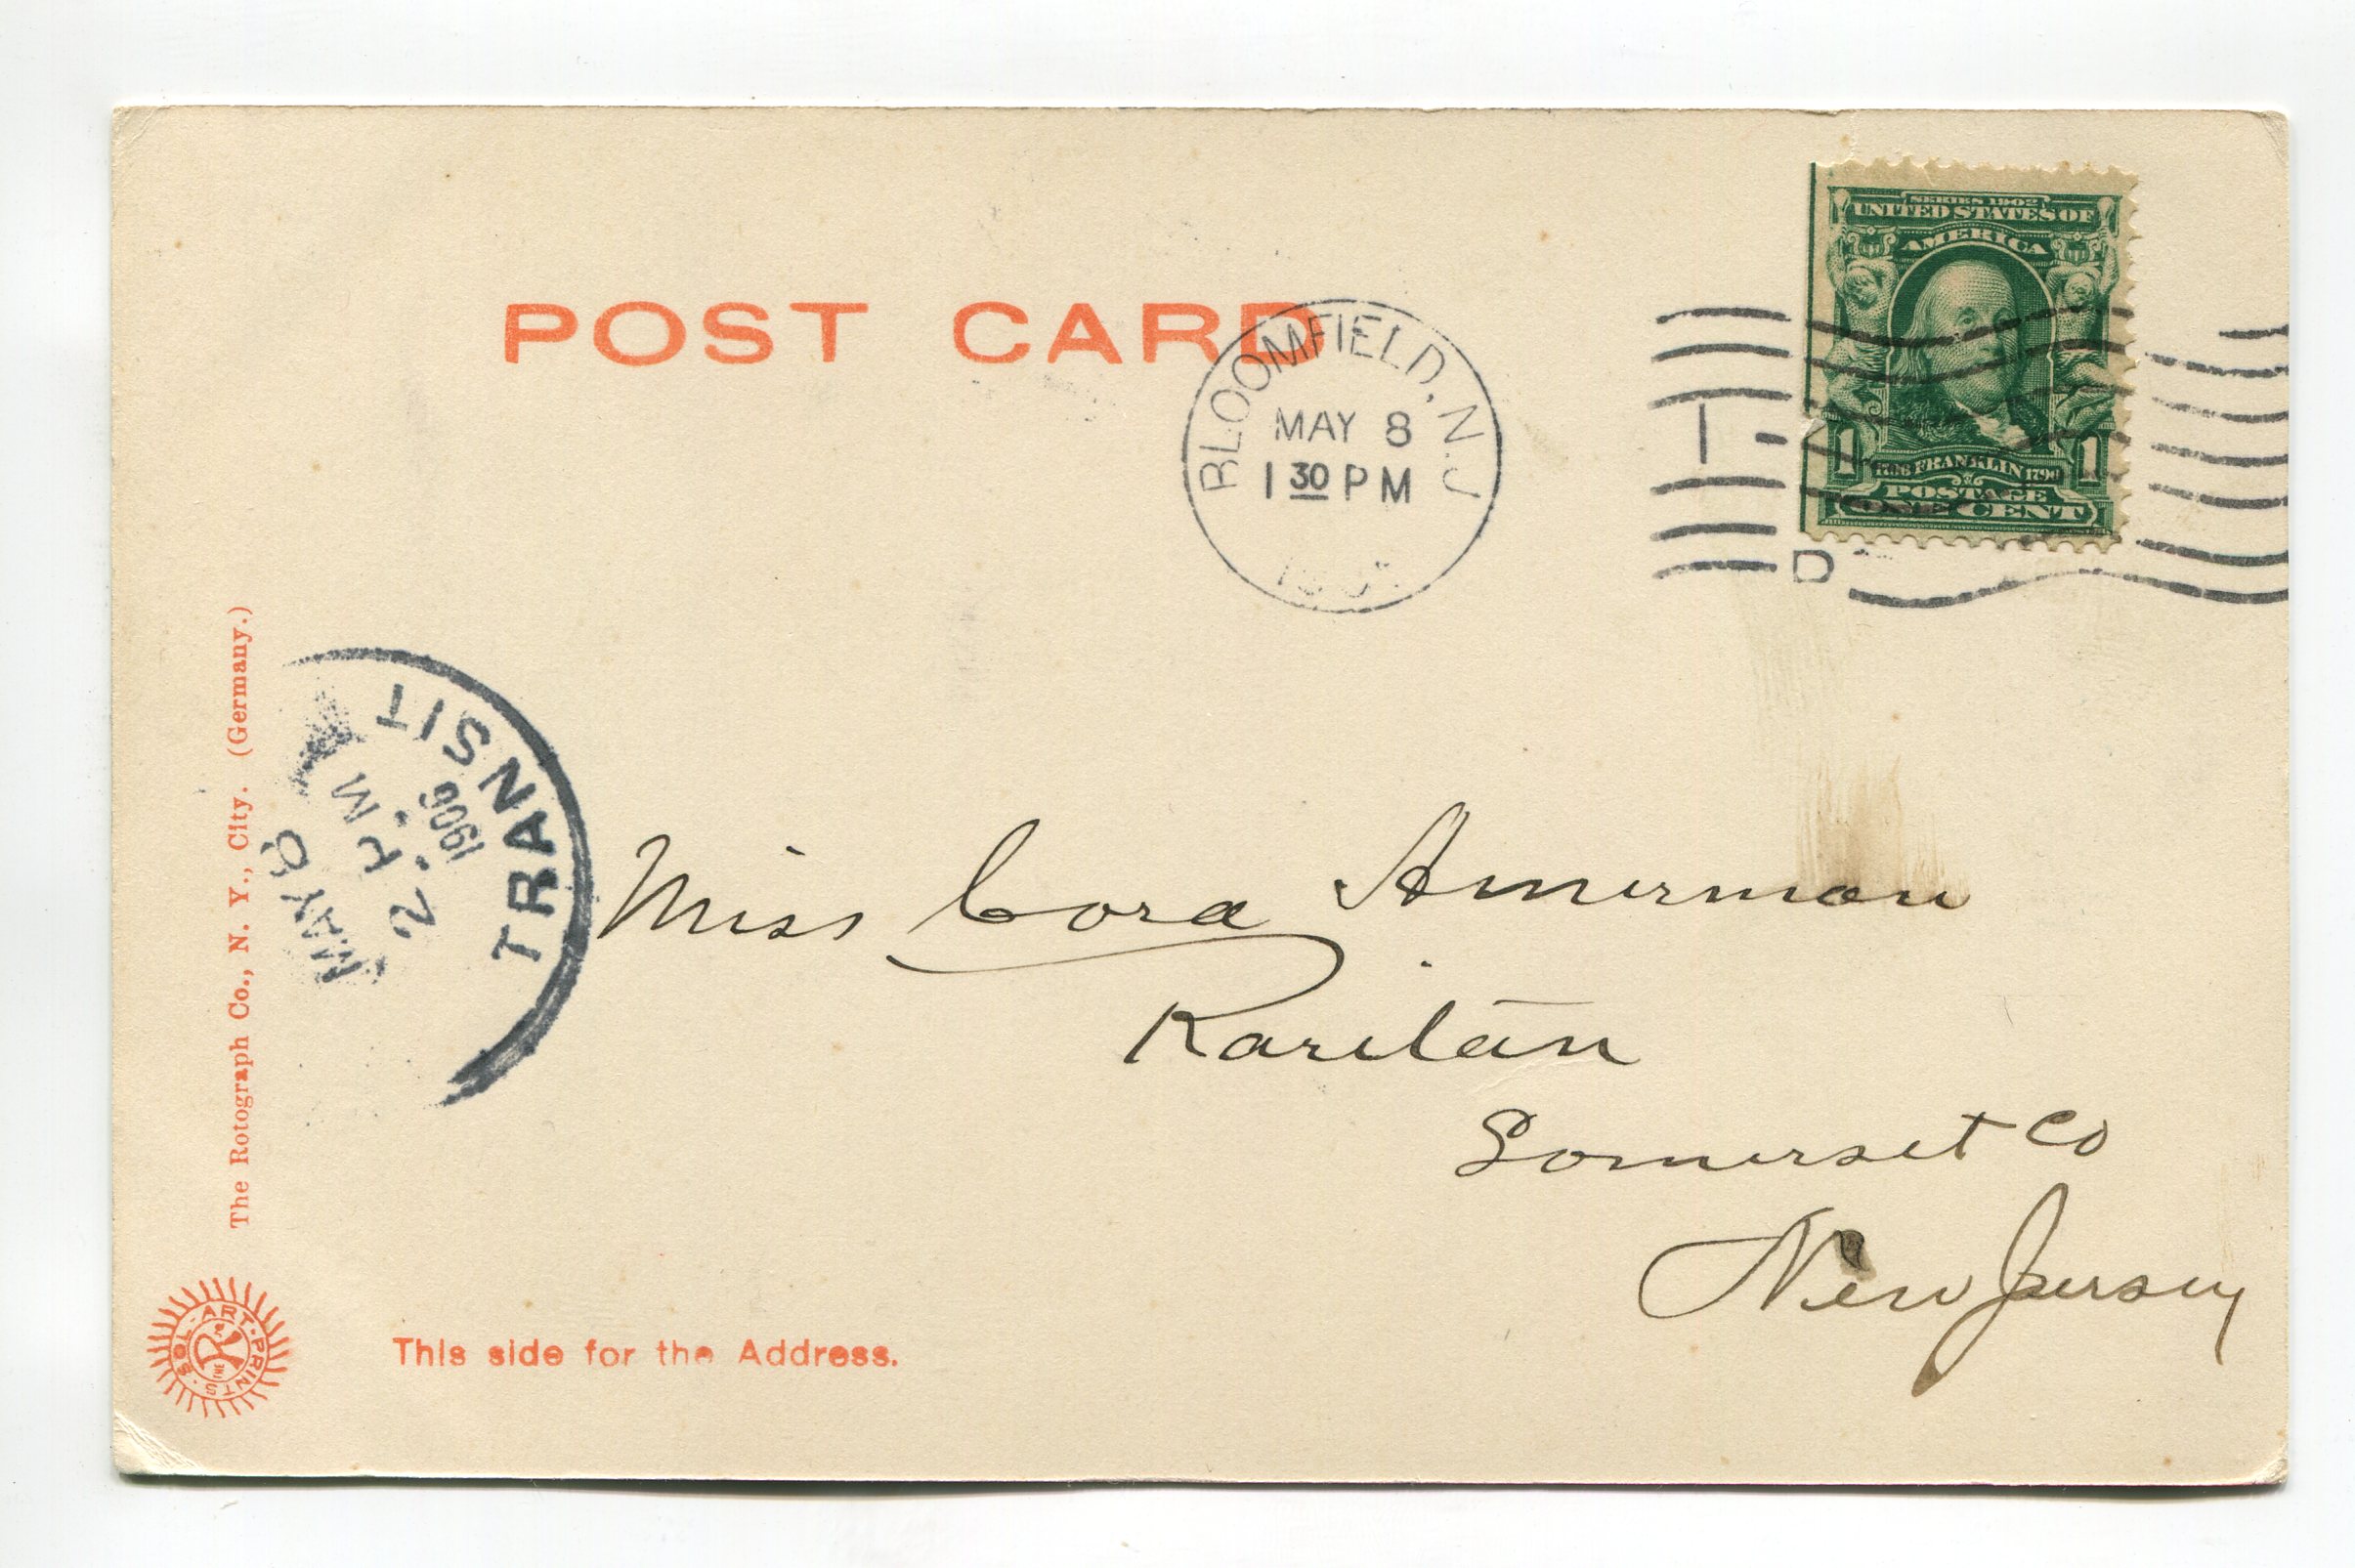 POST CARD
BLOOMFIELD, N.J.
MAY 8
1 30 PM
SERIES 1902
UNITED STATES OF
AMERICA
1 1706 FRANKLIN 1790 1
POSTAGE
ONE CENT
D
TRANSIT
1906
2. P.M
MAY 8
The Rotograph Co., N. Y., City. (Germany.)
Miss Cora Amerman
Raritan
Somerset Co
New Jersey
SOL-ART-PRINTS.
THE R
This side for the Address.